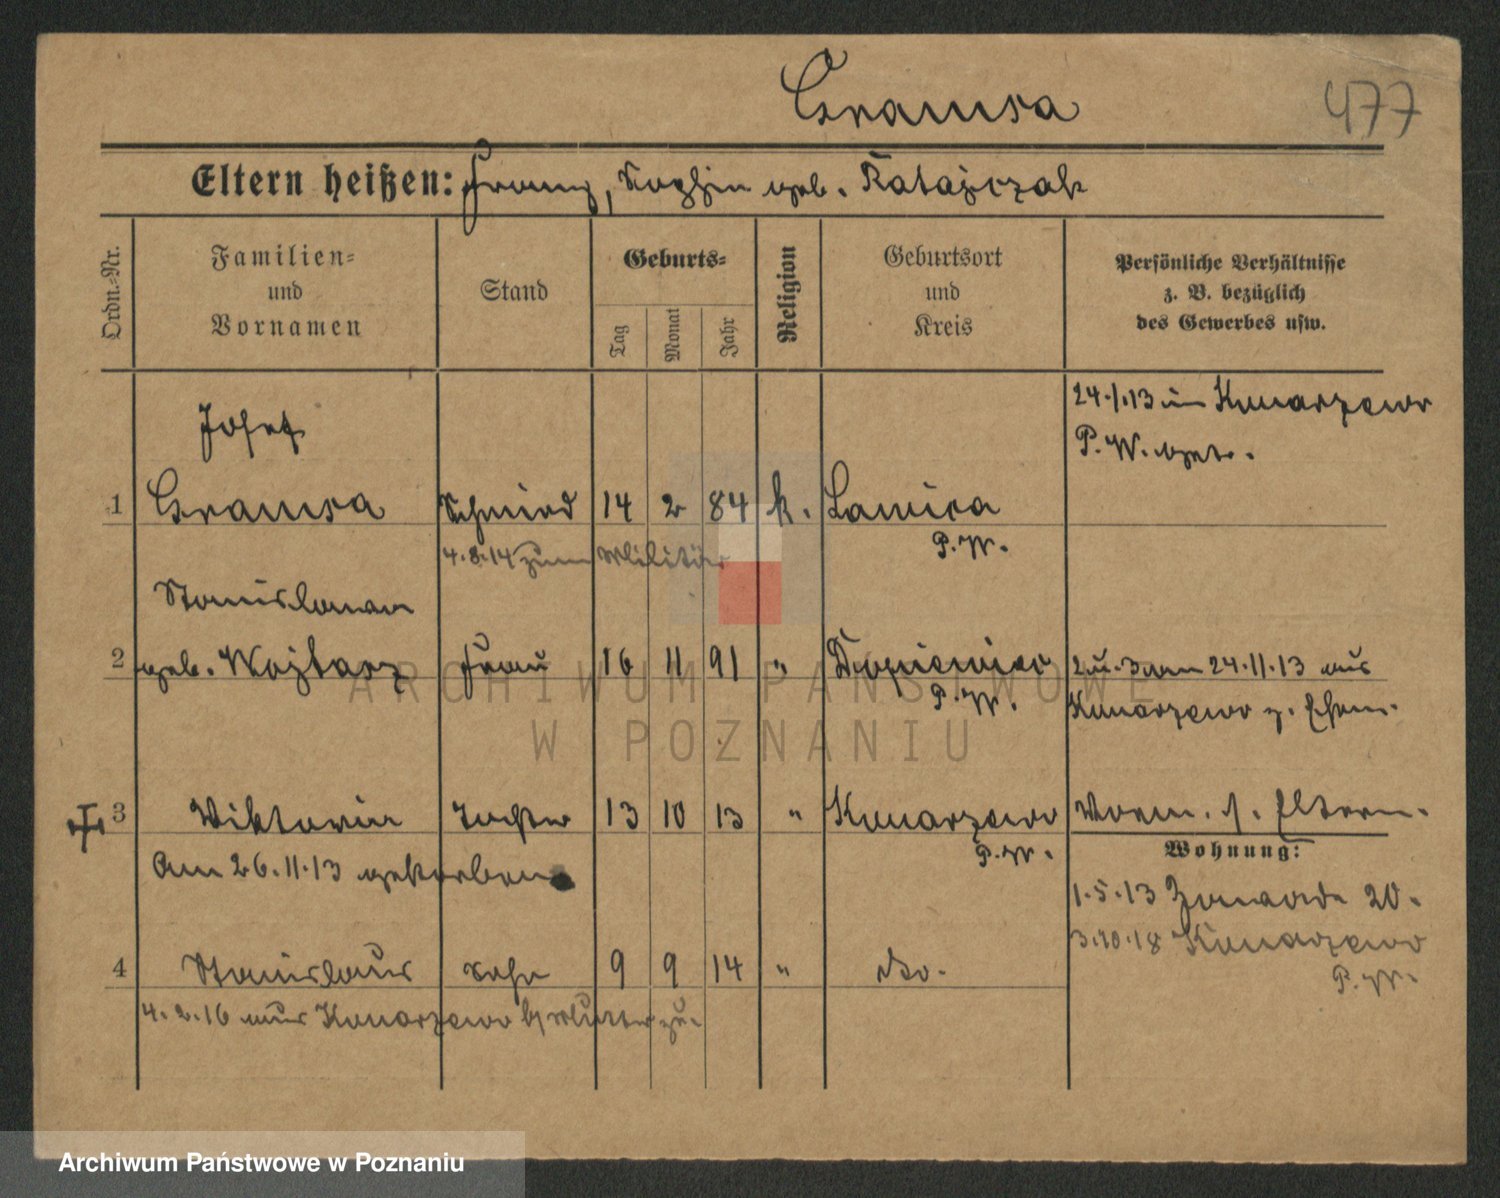 Gramsa
477
Eltern heißen: Franz, Sophia geb. Ratajczak
Ordn.-Nr.
Familien-
und
Vornamen
Stand
Geburts-
Tag
Monat
Jahr
Religion
Geburtsort
und
Kreis
Persönliche Verhältnisse
z. B. bezüglich
des Gewerbes usw.
24.1.13 in Konarzewo
P. W. getr.
Josef
1 Gramsa Schmied 14 2 84 k.
P. W.
4.8.14 zum Militär
Stanislawa
2 geb. Wojtarz Frau 16 11 91 "
P. W.
2 u. 3 am 24.11.13 aus
Konarzewo z. Ehem.
3 Viktoria Tochter 13 10 13 " Konarzewo
P. W.
Am 26.11.13 gestorben
Vorm. s. Eltern.
Wohnung:
1.5.13 20.
3.10.18 Konarzewo
P. W.
4 Stanislaus Sohn 9 9 14 " do.
4.2.16 aus Konarzewo z. Mutter zu.
ARCHIWUM PAŃSTWOWE
W POZNANIU
Archiwum Państwowe w Poznaniu